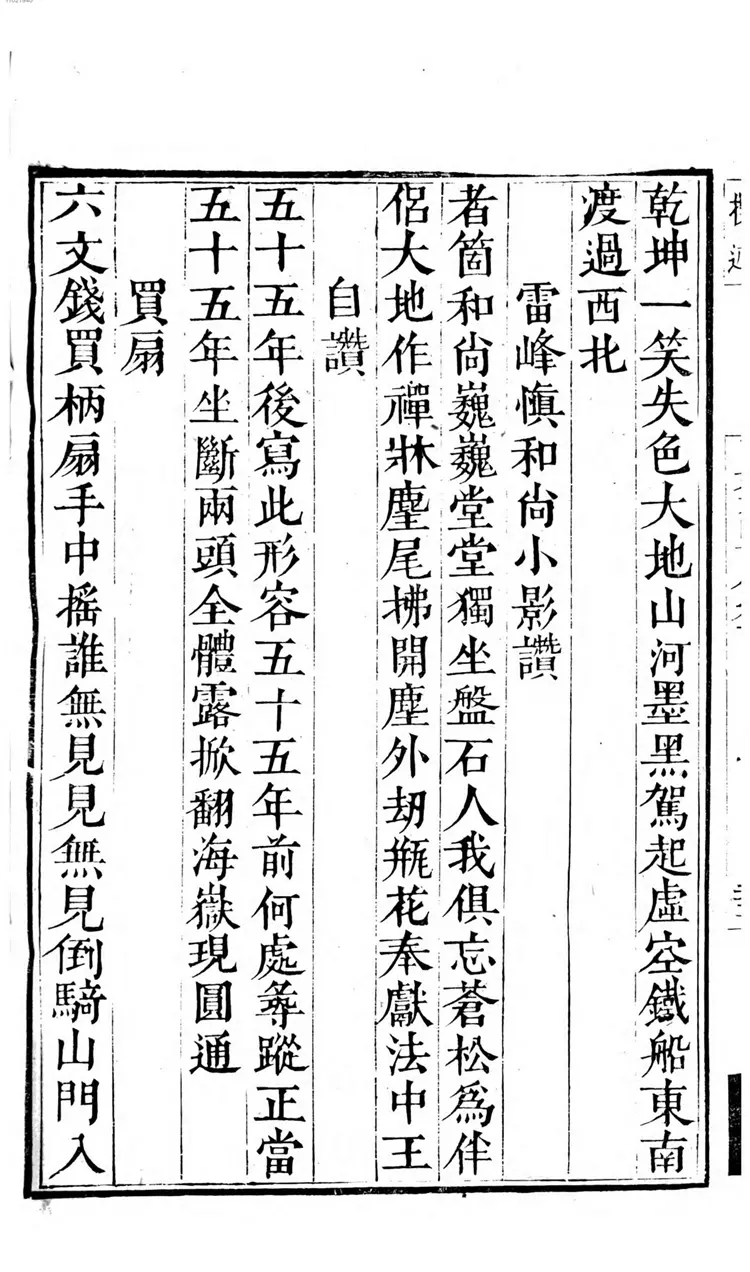 乾坤一笑失色大地山河墨黑駕起虛空鐵船東南
渡過西北
雷峰愼和尚小影讚
者箇和尚巍巍堂堂獨坐盤石人我俱忘蒼松爲伴
侶大地作禪牀麈尾拂開塵外刼甁花奉獻法中王
自讚
五十五年後寫此形容五十五年前何處尋蹤正當
五十五年坐斷兩頭全體露掀翻海嶽現圓通
買扇
六文錢買柄扇手中搖誰無見見無見倒騎山門入